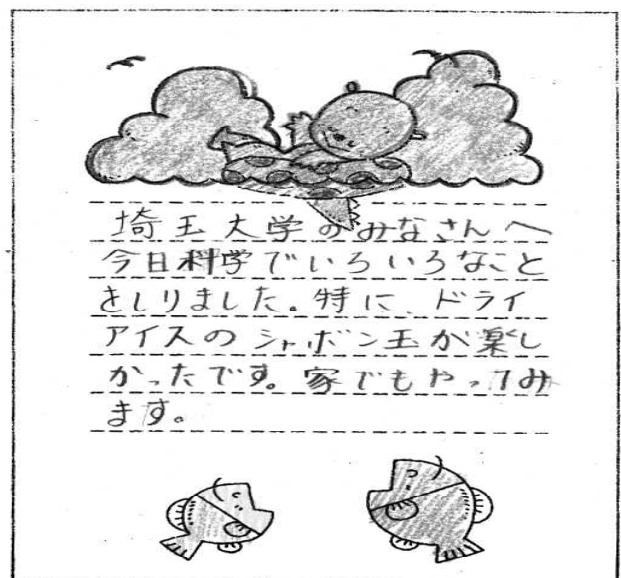 埼玉大学のみなさんへ
今日科学でいろいろなこと
をしりました。特に、ドライ
アイスのシャボン玉が楽し
かったです。家でもやってみ
ます。